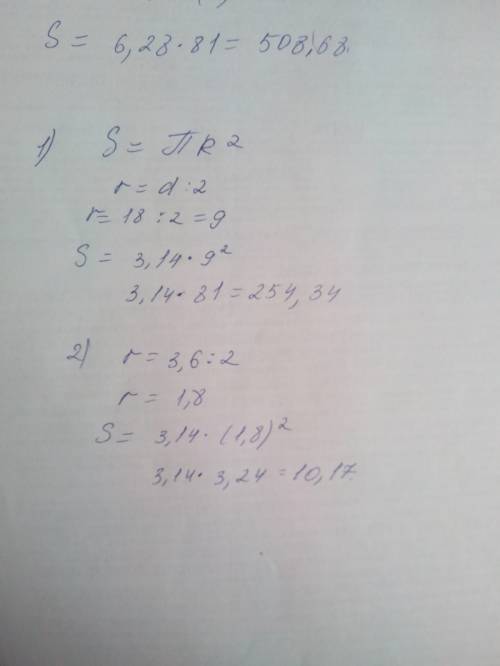 S = 6,28 · 81 = 508,68.
1) S = ПR²
r = d : 2
r = 18 : 2 = 9
S = 3,14 · 9²
3,14 · 81 = 254,34
2) r = 3,6 : 2
r = 1,8
S = 3,14 · (1,8)²
3,14 · 3,24 = 10,17.